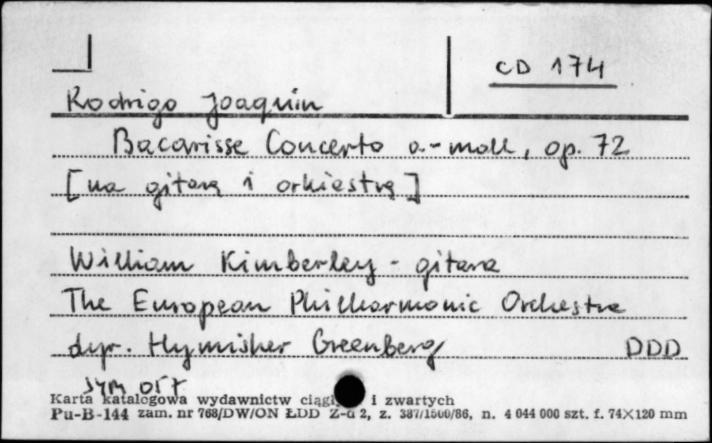 CD 174
Rodrigo Joaquin
Bacarisse Concerto a-moll, op. 72
[na gitarę i orkiestrę]
William Kimberley - gitara
The European Philharmonic Orchestra
dyr. Hymisher Greenberg DDD
sym ork
Karta katalogowa wydawnictw i zwartych
Pu-B-144 zam. nr 768/DW/ON ŁDD Z-d 2, z. 387/1500/86, n. 4 044 000 szt. f. 74×120 mm